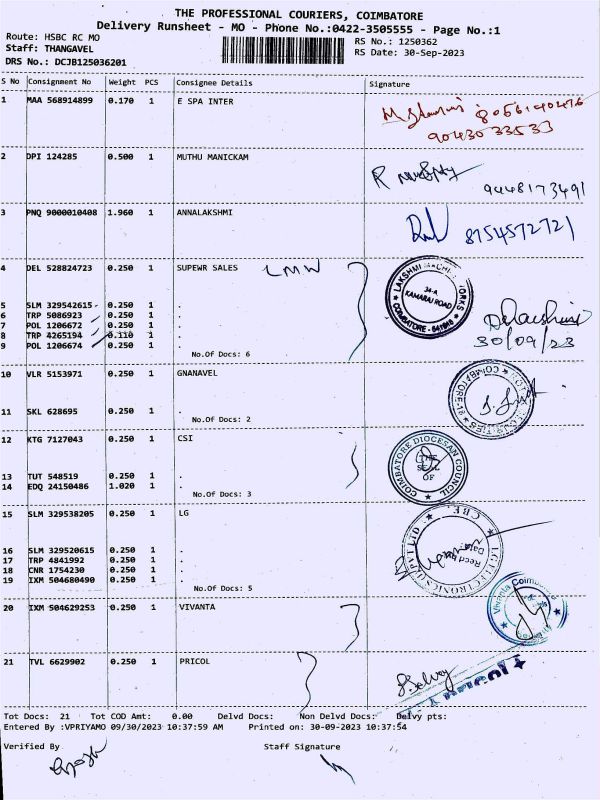 THE PROFESSIONAL COURIERS, COIMBATORE
Delivery Runsheet - MO - Phone No.:0422-3505555 - Page No.:1
Route: HSBC RC MO
RS No.: 1250362
Staff: THANGAVEL
RS Date: 30-Sep-2023
DRS No.: DCJB125036201
S No Consignment No Weight PCS Consignee Details Signature
1 MAA 568914899 0.170 1 E SPA INTER
8056140476
9043033533
2 DPI 124285 0.500 1 MUTHU MANICKAM
9448173491
3 PNQ 9000010408 1.960 1 ANNALAKSHMI
8754572721
4 DEL 528824723 0.250 1 SUPEWR SALES LMW
34-A
KAMARAJ ROAD
COIMBATORE
5 SLM 329542615 0.250 1 .
6 TRP 5086923 0.250 1 .
7 POL 1206672 0.250 1 .
8 TRP 4265194 0.110 1 .
9 POL 1206674 0.250 1 .
30/09/23
No.Of Docs: 6
10 VLR 5153971 0.250 1 GNANAVEL
11 SKL 628695 0.250 1 .
No.Of Docs: 2
12 KTG 7127043 0.250 1 CSI
COIMBATORE DIOCESAN COUNCIL
THE SEAL OF
13 TUT 548519 0.250 1 .
14 EDQ 24150486 1.020 1 .
No.Of Docs: 3
15 SLM 329538205 0.250 1 LG
LG ELECTRONICS
16 SLM 329520615 0.250 1 .
17 TRP 4841992 0.250 1 .
18 CNR 1754230 0.250 1 .
19 IXM 504680490 0.250 1 .
No.Of Docs: 5
20 IXM 504629253 0.250 1 VIVANTA
Vivanta Coimbatore
21 TVL 6629902 0.250 1 PRICOL
Tot Docs: 21 Tot COD Amt: 0.00 Delvd Docs: Non Delvd Docs: Delvy pts:
Entered By :VPRIYAMO 09/30/2023 10:37:59 AM Printed on: 30-09-2023 10:37:54
Verified By Staff Signature